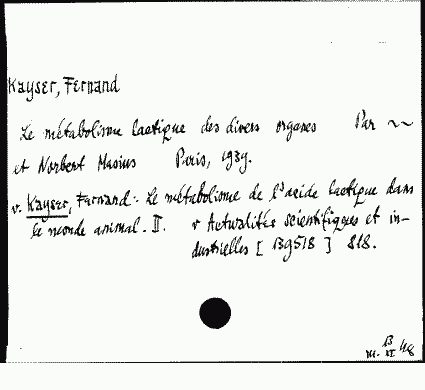 Kayser, Fernand
Le métabolisme lactique des divers organes Par ~~
et Norbert Masius Paris, 1939.
v. Kayser, Fernand: Le métabolisme de l'acide lactique dans
le monde animal. II. v Actualités scientifiques et in-
dustrielles [ B9518 ] 818.
13
III. XI 48